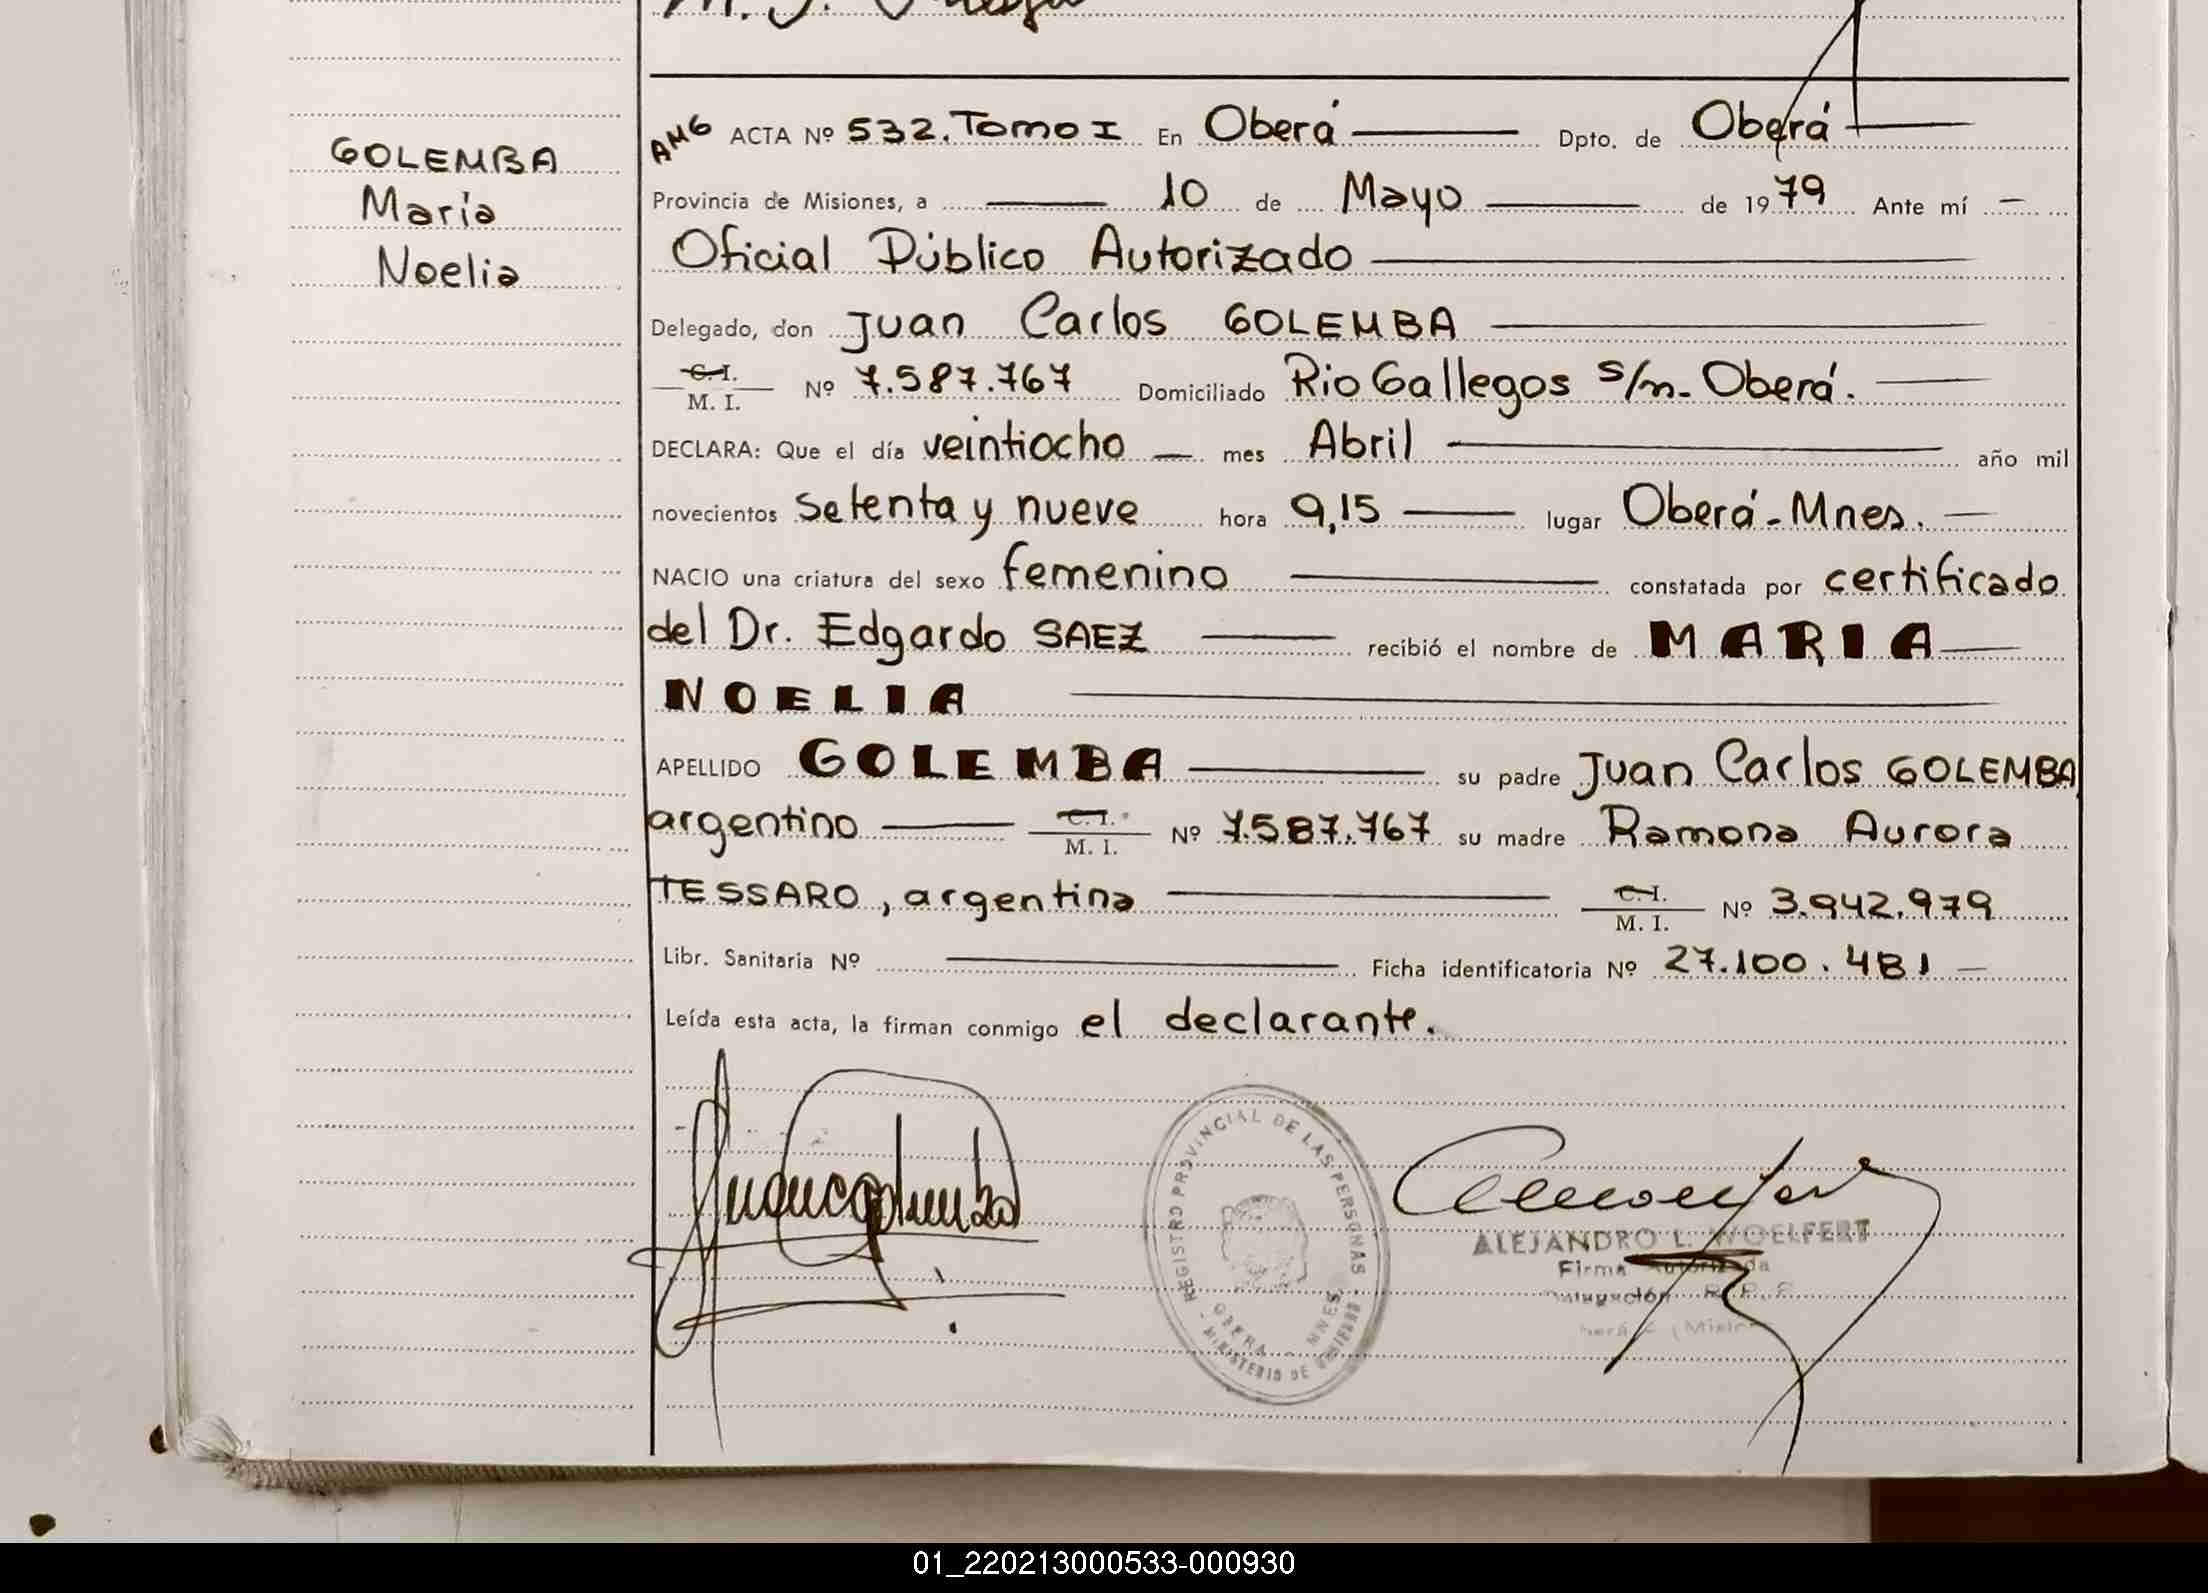 GOLEMBA
María
Noelia
AMG ACTA Nº 532. Tomo I En Oberá Dpto. de Oberá
Provincia de Misiones, a 10 de Mayo de 1979 Ante mí
Oficial Público Autorizado
Delegado, don Juan Carlos GOLEMBA
C. I. / M. I. Nº 7.587.767 Domiciliado Rio Gallegos s/n. Oberá.
DECLARA: Que el día veintiocho mes Abril año mil
novecientos setenta y nueve hora 9,15 lugar Oberá - Mnes.
NACIO una criatura del sexo femenino constatada por certificado
del Dr. Edgardo SAEZ recibió el nombre de MARIA
NOELIA
APELLIDO GOLEMBA su padre Juan Carlos GOLEMBA
argentino C. I. / M. I. Nº 7.587.767 su madre Ramona Aurora
TESSARO, argentina C. I. / M. I. Nº 3.942.979
Libr. Sanitaria Nº Ficha identificatoria Nº 27.100.481
Leída esta acta, la firman conmigo el declarante.
REGISTRO PROVINCIAL DE LAS PERSONAS
OBERA - MNES.
MINISTERIO DE GOBIERNO
ALEJANDRO L. WOELFERT
Firma Autorizada
Delegación R. P. P.
01_220213000533-000930